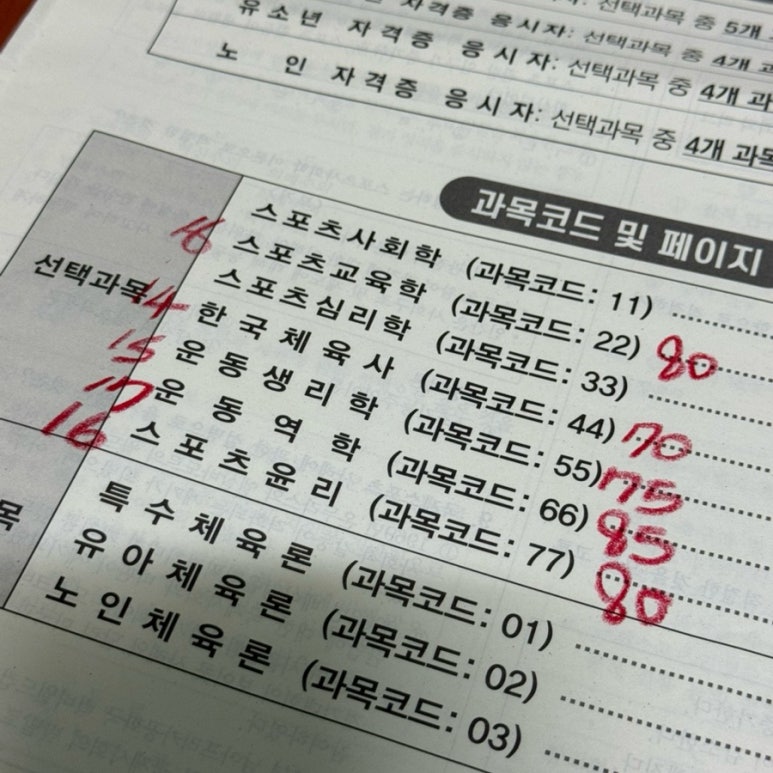 자격증 응시자: 선택과목 중 5개
유소년 자격증 응시자: 선택과목 중 4개 과
노인 자격증 응시자: 선택과목 중 4개 과
선택과목 중 4개 과목
과목코드 및 페이지
선택과목
16 스포츠사회학 (과목코드: 11)
스포츠교육학 (과목코드: 22) 80
스포츠심리학 (과목코드: 33)
14 한국체육사 (과목코드: 44) 70
15 운동생리학 (과목코드: 55) 75
17 운동역학 (과목코드: 66) 85
16 스포츠윤리 (과목코드: 77) 80
목
특수체육론 (과목코드: 01)
유아체육론 (과목코드: 02)
노인체육론 (과목코드: 03)